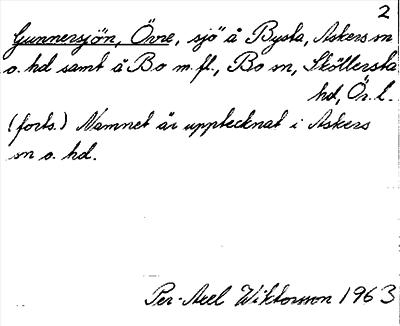 2
Gunnersjön, Övre, sjö å Bysta, Askers sn
o. hd samt å Bo m.fl., Bo sn, Sköllersta
hd, Ör. l.
(forts.) Namnet är upptecknat i Askers
sn o. hd.
Per-Axel Wiktorsson 1963